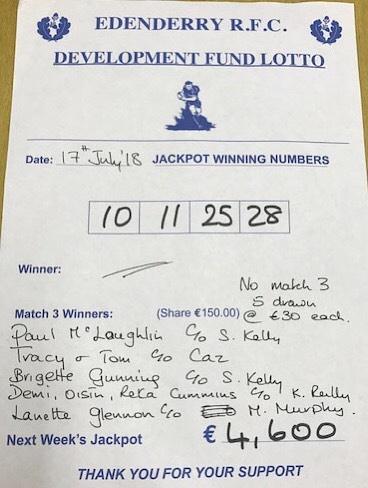 EDENDERRY R.F.C.
DEVELOPMENT FUND LOTTO
Date: 17th July '18 JACKPOT WINNING NUMBERS
10 11 25 28
Winner:
No match 3
5 drawn
Match 3 Winners: (Share €150.00) @ €30 each.
Paul McLaughlin c/o S. Kelly
Tracy & Tom c/o Caz
Brigette Gunning c/o S. Kelly
Demi, Oisín, Reka Cummins c/o K. Reilly
Lanette Glennon c/o M. Murphy.
Next Week's Jackpot €4,600
THANK YOU FOR YOUR SUPPORT